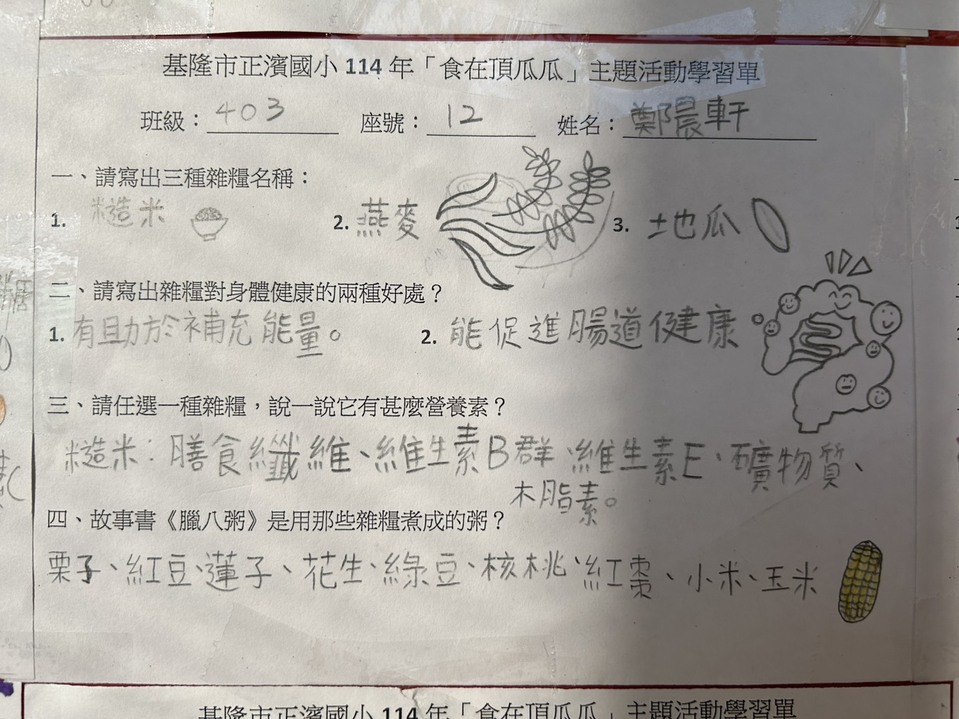 基隆市正濱國小 114 年「食在頂瓜瓜」主題活動學習單
班級：403 座號：12 姓名：鄭晨軒
一、請寫出三種雜糧名稱：
1. 糙米 2. 燕麥 3. 地瓜
二、請寫出雜糧對身體健康的兩種好處？
1. 有助於補充能量。 2. 能促進腸道健康
三、請任選一種雜糧，說一說它有甚麼營養素？
糙米：膳食纖維、維生素B群、維生素E、礦物質、
木脂素。
四、故事書《臘八粥》是用那些雜糧煮成的粥？
栗子、紅豆、蓮子、花生、綠豆、核桃、紅棗、小米、玉米
基隆市正濱國小 114 年「食在頂瓜瓜」主題活動學習單